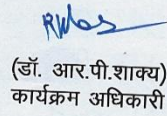 (डॉ. आर.पी.शाक्य)
कार्यक्रम अधिकारी